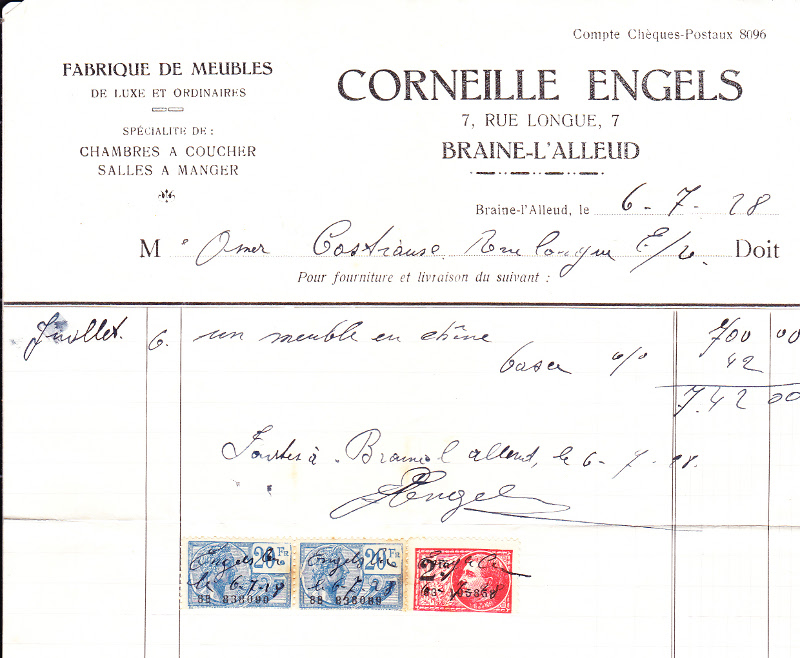 Compte Chèques-Postaux 8096
FABRIQUE DE MEUBLES
DE LUXE ET ORDINAIRES
SPÉCIALITÉ DE :
CHAMBRES A COUCHER
SALLES A MANGER
CORNEILLE ENGELS
7, RUE LONGUE, 7
BRAINE-L'ALLEUD
Braine-l'Alleud, le 6 - 7 - 28
M r Omer rue longue E/V. Doit
Pour fourniture et livraison du suivant :
Juillet. 6. un meuble en chêne 700 00
taxe 6 % 42
742 00
Braine l'alleud, le 6 - 7 - 28.
Engels
20 FR 20 FR 2
Engels Engels
le 6-7-28 le 6-7-28 6-7-28
88 838090 88 838089